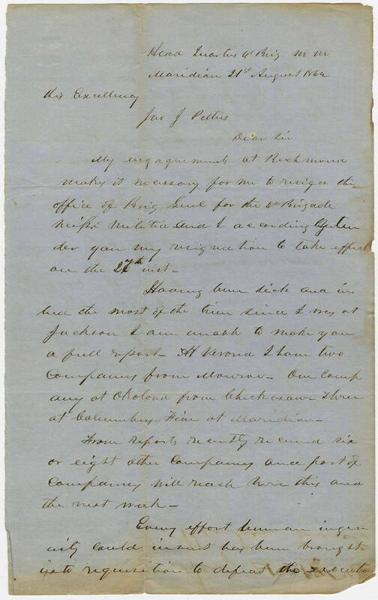 Head Quarters 4 Brig M M
Maridian 21st August 1862
His Excellency
Jno J Pettus
Dear Sir
My engagements at Richmond
makes it necessary for me to resign the
office of Brig Genl for the 4 Brigade
Missi Militia and I accordingly ten
der you my resignation to take effect
on the 27th inst-
Having been sick and in
bed the most of the time since I was at
Jackson I am unable to make you
a full report- At Verona I have two
Companies from Monroe- One Comp
any at Okolona from Chickasaw Three
at Columbus Five at Maridian-
From reports recently received six
or eight other Companies and part of
Companies will reach here this and
the next week-
Every effort human ingen
uity could invent has been brought
into requisition to defeat the execution